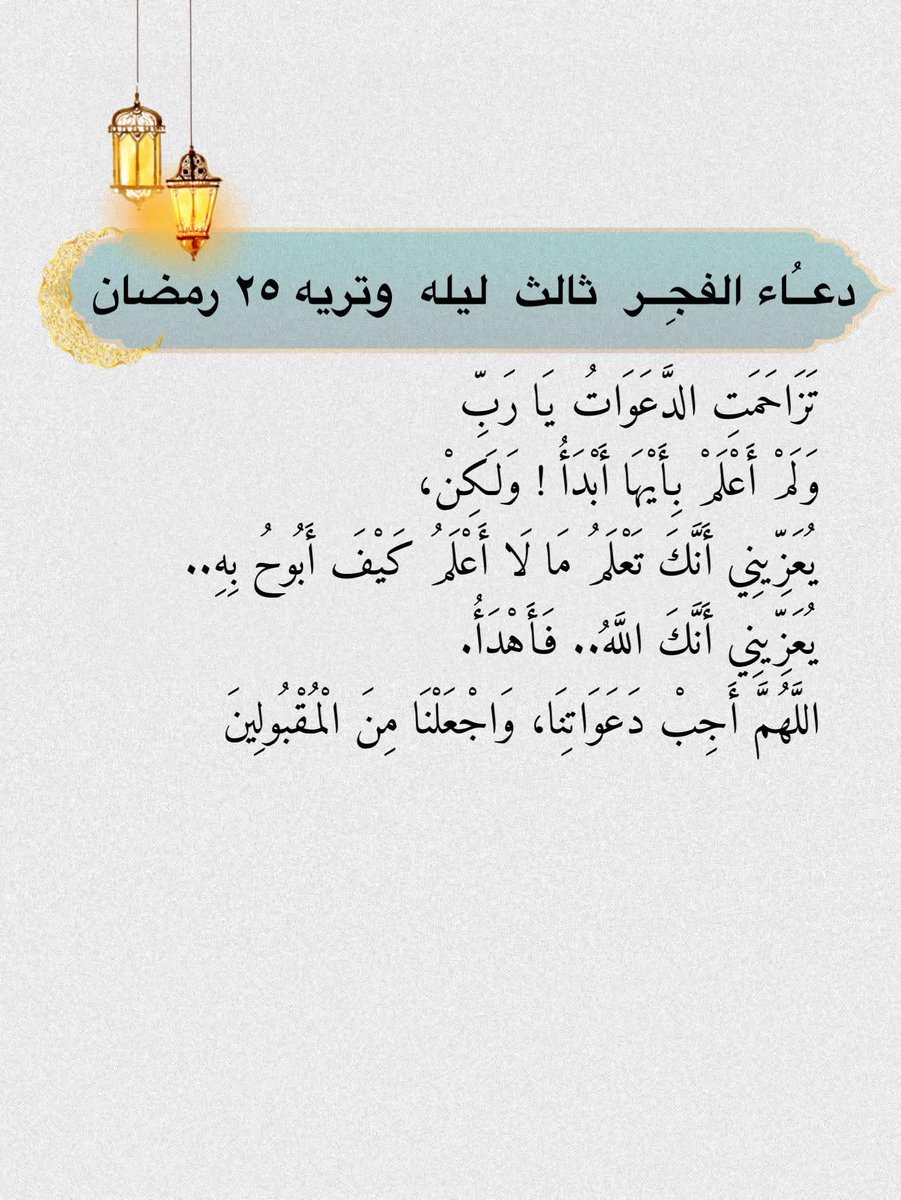 دعــُاء الفجِــر ثالث ليله وتريه ٢٥ رمضان
تَزَاحَمَتِ الدَّعَوَاتُ يَا رَبِّ
وَلَمْ أَعْلَمْ بِأَيْهَا أَبْدَأُ ! وَلَكِنْ،
يُعَزِّينِي أَنَّكَ تَعْلَمُ مَا لَا أَعْلَمُ كَيْفَ أَبُوحُ بِهِ..
يُعَزِّينِي أَنَّكَ اللَّهُ.. فَأَهْدَأُ.
اللَّهُمَّ أَجِبْ دَعَوَاتِنَا، وَاجْعَلْنَا مِنَ الْمُقْبُولِينَ